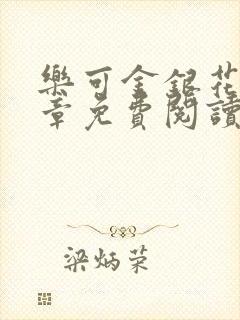 樂可金銀花
章免費閱讀
梁炳荣